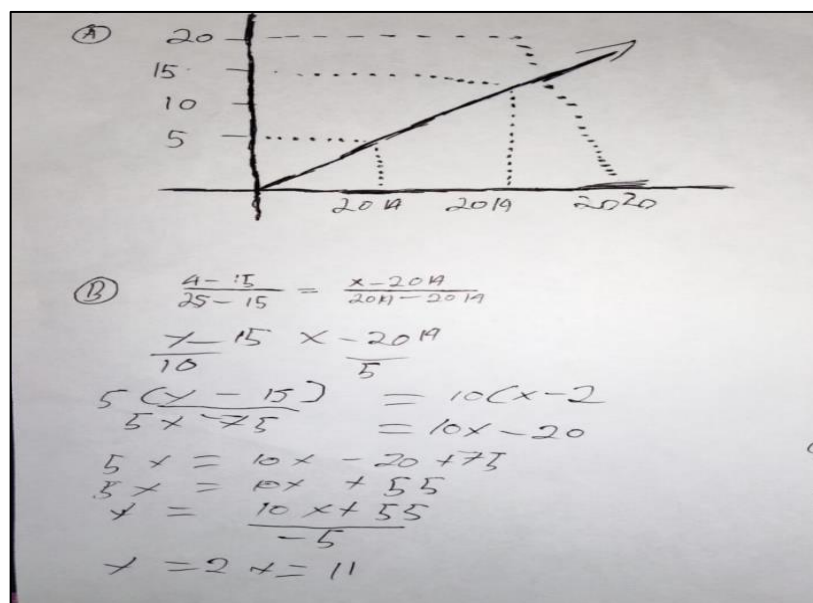 A
20
15
10
5
2014 2019 2020
B
4 - 15 / 25 - 15 = x - 2014 / 2019 - 2014
y - 15 / 10 x - 2014 / 5
5 (y - 15) = 10(x - 2
5x - 75 = 10x - 20
5x = 10x - 20 + 75
5x = 10x + 55
y = 10x + 55 / -5
y = 2x = 11